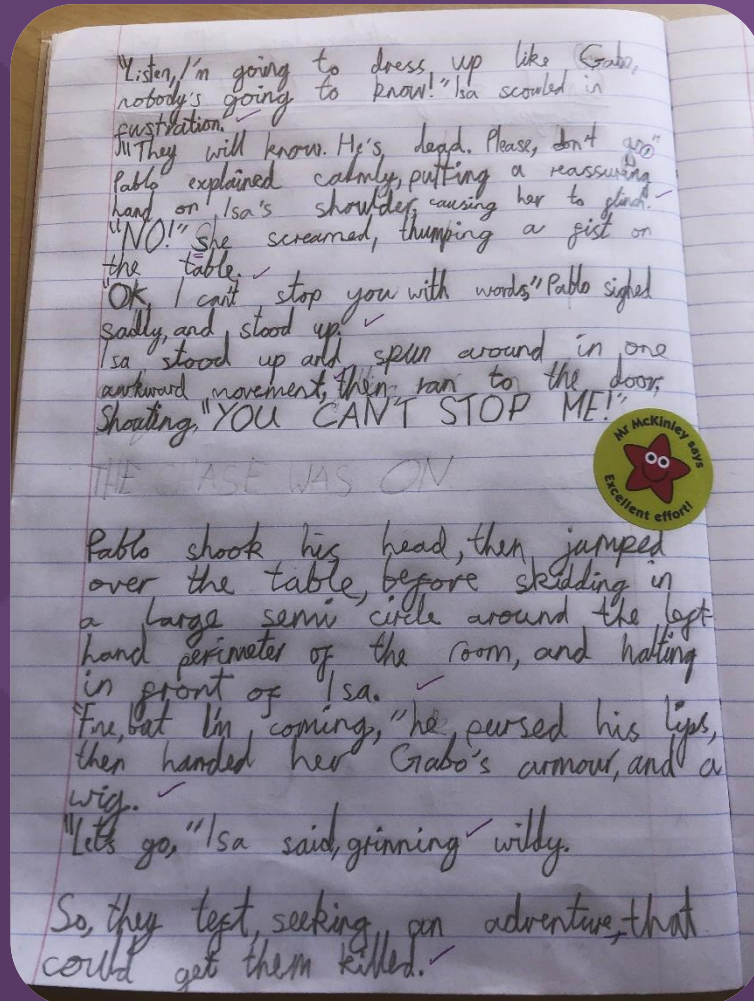 "Listen, I'm going to dress up like Gabo,
nobody's going to know!" Isa scowled in
fustration.
"They will know. He's dead. Please, don't go"
Pablo explained calmly, putting a reassuring
hand on Isa's shoulder, causing her to flinch.
"NO!" she screamed, thumping a fist on
the table.
"OK, I can't stop you with words," Pablo sighed
sadly, and stood up.
Isa stood up and spun around in one
awkward movement, then ran to the door,
shouting, "YOU CAN'T STOP ME!"
Mr McKinley says
Excellent effort!
THE CHASE WAS ON
Pablo shook his head, then jumped
over the table, before skidding in
a large semi circle around the left
hand perimeter of the room, and halting
in front of Isa.
"Fine, but I'm coming," he pursed his lips,
then handed her Gabo's armour, and a
wig.
"Let's go," Isa said, grinning wildy.
So, they left, seeking an adventure, that
could get them killed.